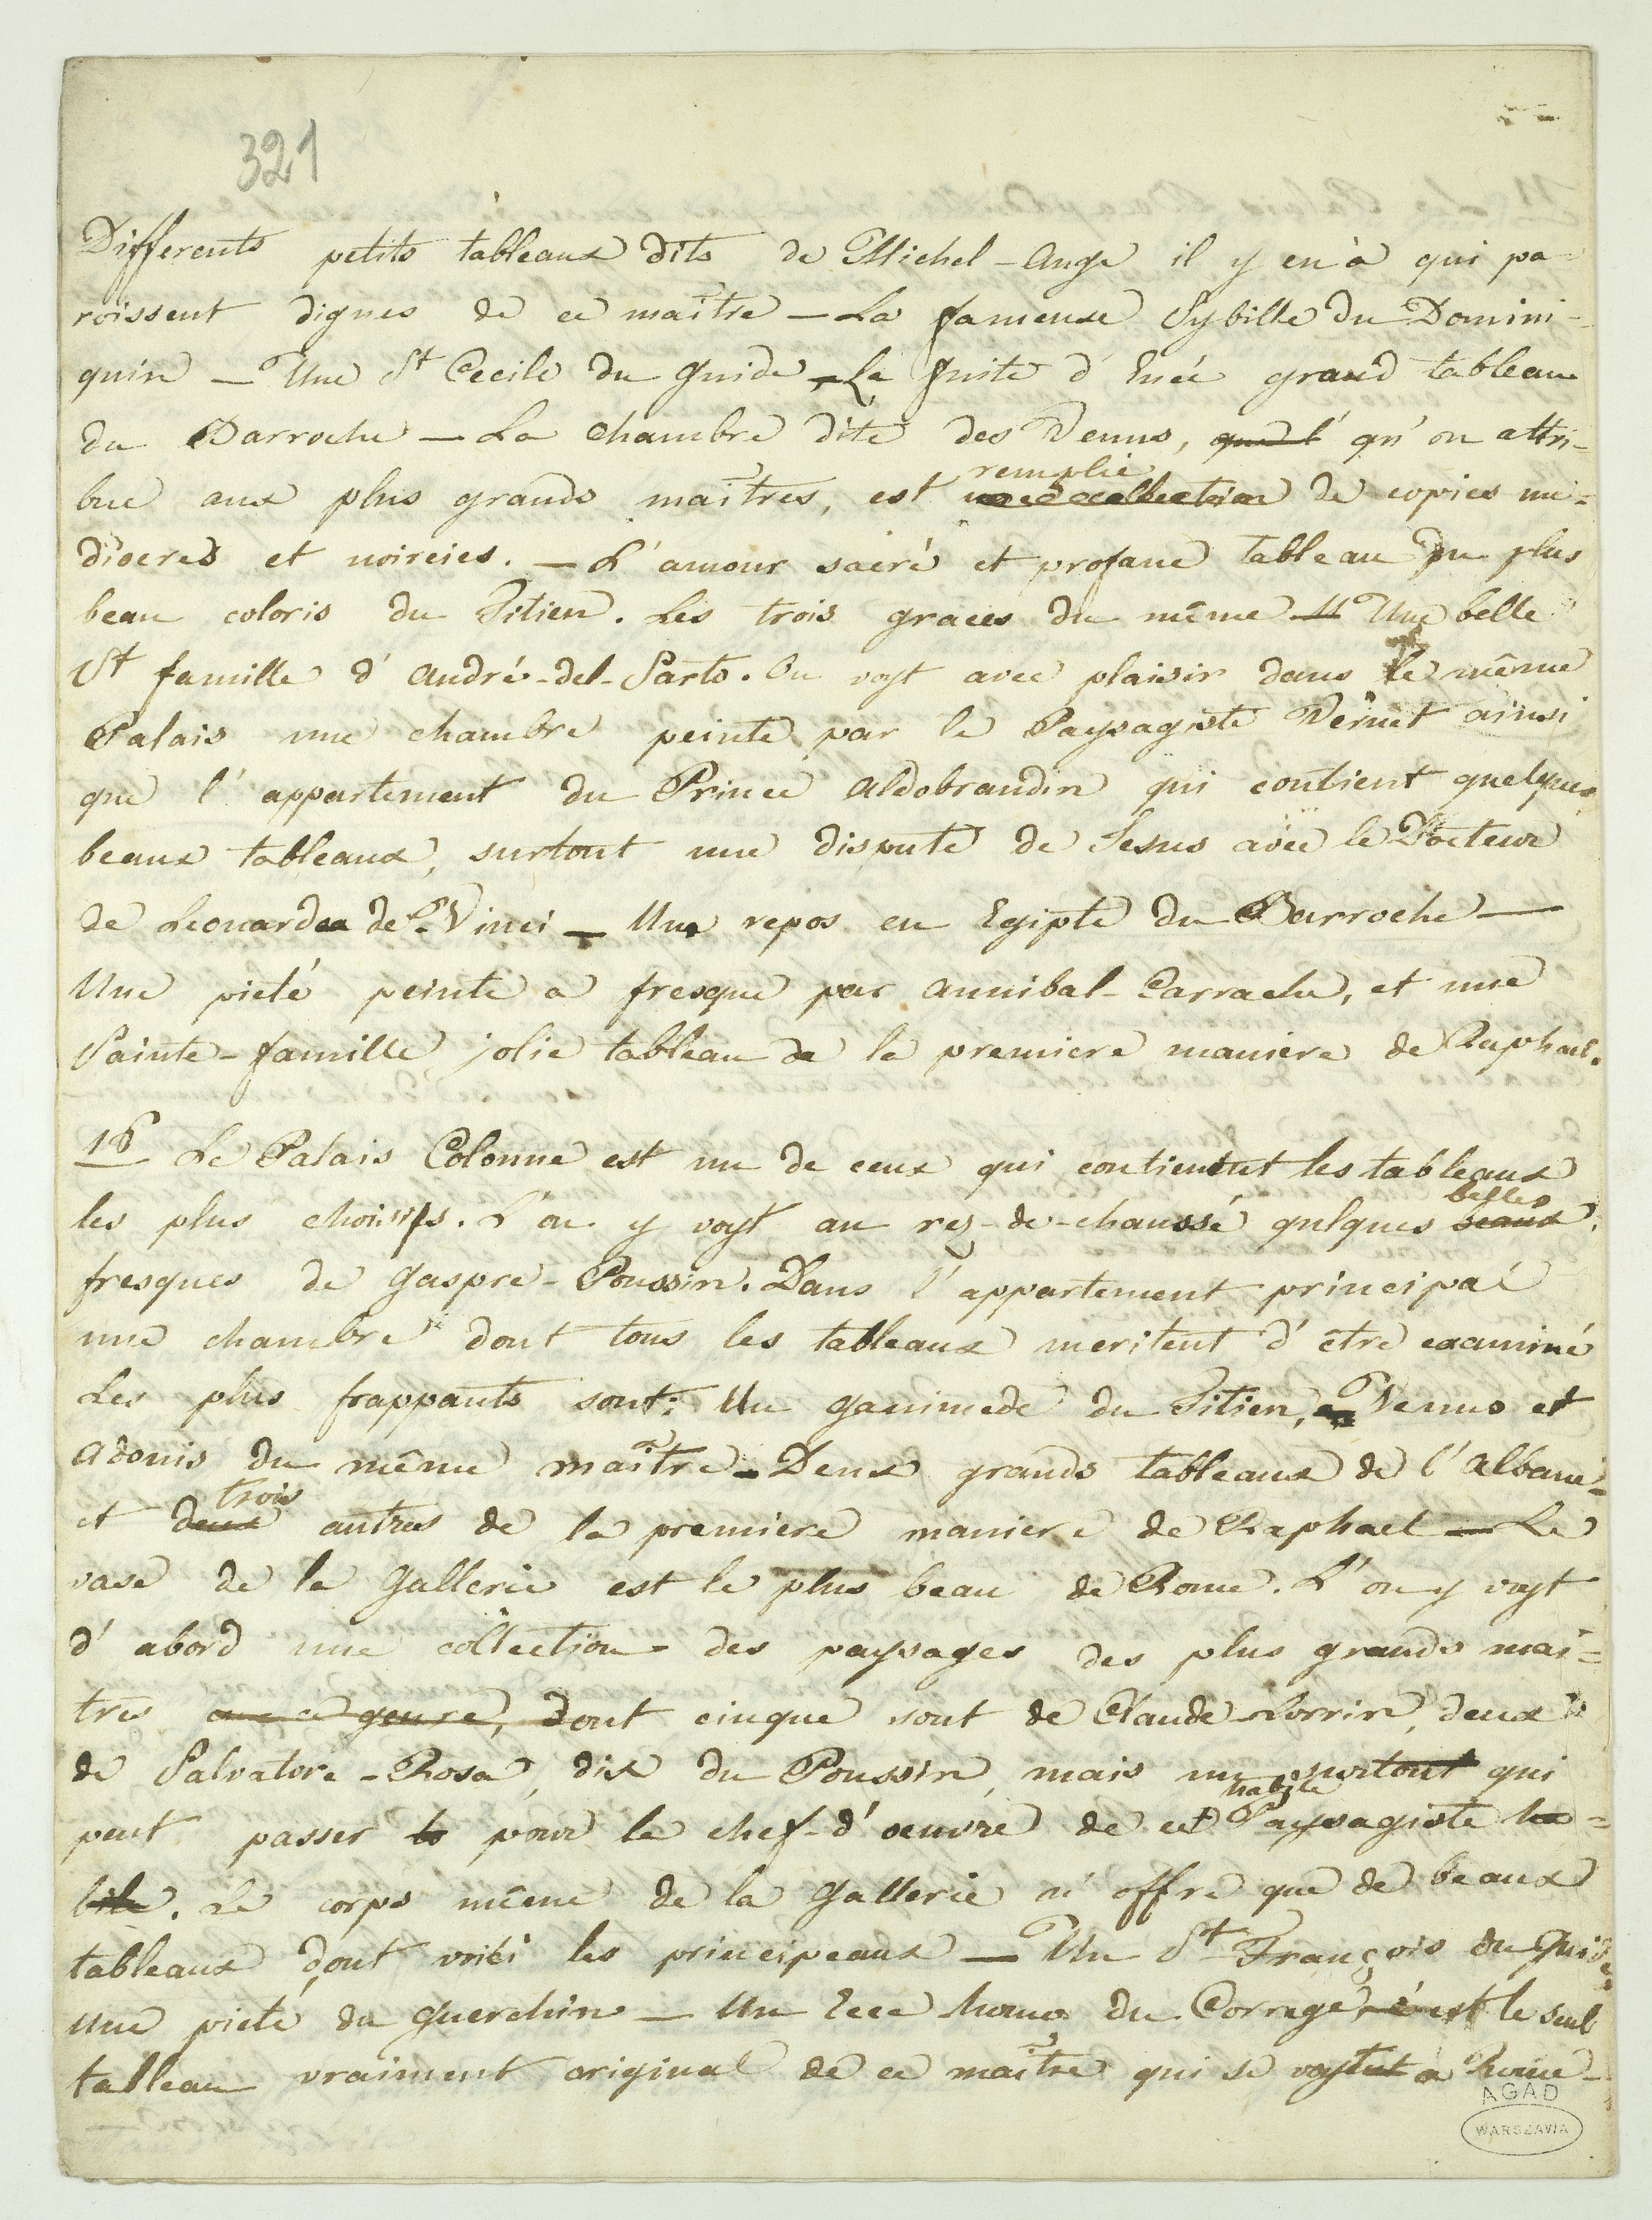 321
Differents petits tableaux dits de Michel-Ange il y en à qui pa-
roissent dignes de ce maître — La fameuse Sybille du Domini-
quin — Une St Cecile du Guide — La fuite d'Enée grand tableau
du Barroche — La Chambre dite des Venus, qu'on attri-
bue aux plus grands maîtres, est remplie de copies me=
diocres et noircies. — L'amour sacré et profane tableau du plus
beau coloris du Titien. Les trois graces du même — Une belle
St famille d'André-del-Sarto. On voyt avec plaisir dans le même
Palais une chambre peinte par le Paysagiste Vernet ainsi
que l'appartement du Prince Aldobrandin qui contient quelques
beaux tableaux, surtout une dispute de Jesus avec le Docteur
de Leonard de Vinci — Un repos en Egipte du Barroche —
Une pieté peinte a fresque par Annibal-Carrache, et une
Sainte-famille jolie tableau de la premiere maniere de Raphael.
16 Le Palais Colonne est un de ceux qui contienent les tableaux
les plus choisis. L'on y voyt au rez-de-chaussé qulques belles
fresques de Gaspre-Poussin. Dans l'appartement principal
une chambre dont tous les tableaux meritent d'être examiné
Les plus frappants sont: Un Ganimede du Titien, Venus et
Adonis du même maître — Deux grands tableaux de l'Albane-
et trois autres de la premiere maniere de Raphael — Le
vase de la Gallerie est le plus beau de Rome. L'on y voyt
d'abord une collection des paysages des plus grands mai=
tres dont cinque sont de Claude-Lorrin, deux
de Salvatore-Rosa, dix du Poussin, mais un surtout qui
peut passer pour le chef-d'oeuvre de cet habile Paysagiste
. Le corps même de la Gallerie n'offre que de beaux
tableaux dont voici les principeaux — Un St François du Guide
Une pieté du Guerchin — Un Ecce homo du Correge, c'est le seul
tableau vraiment original de ce maître qui se voyt a Rome-
AGAD
WARSZAWA